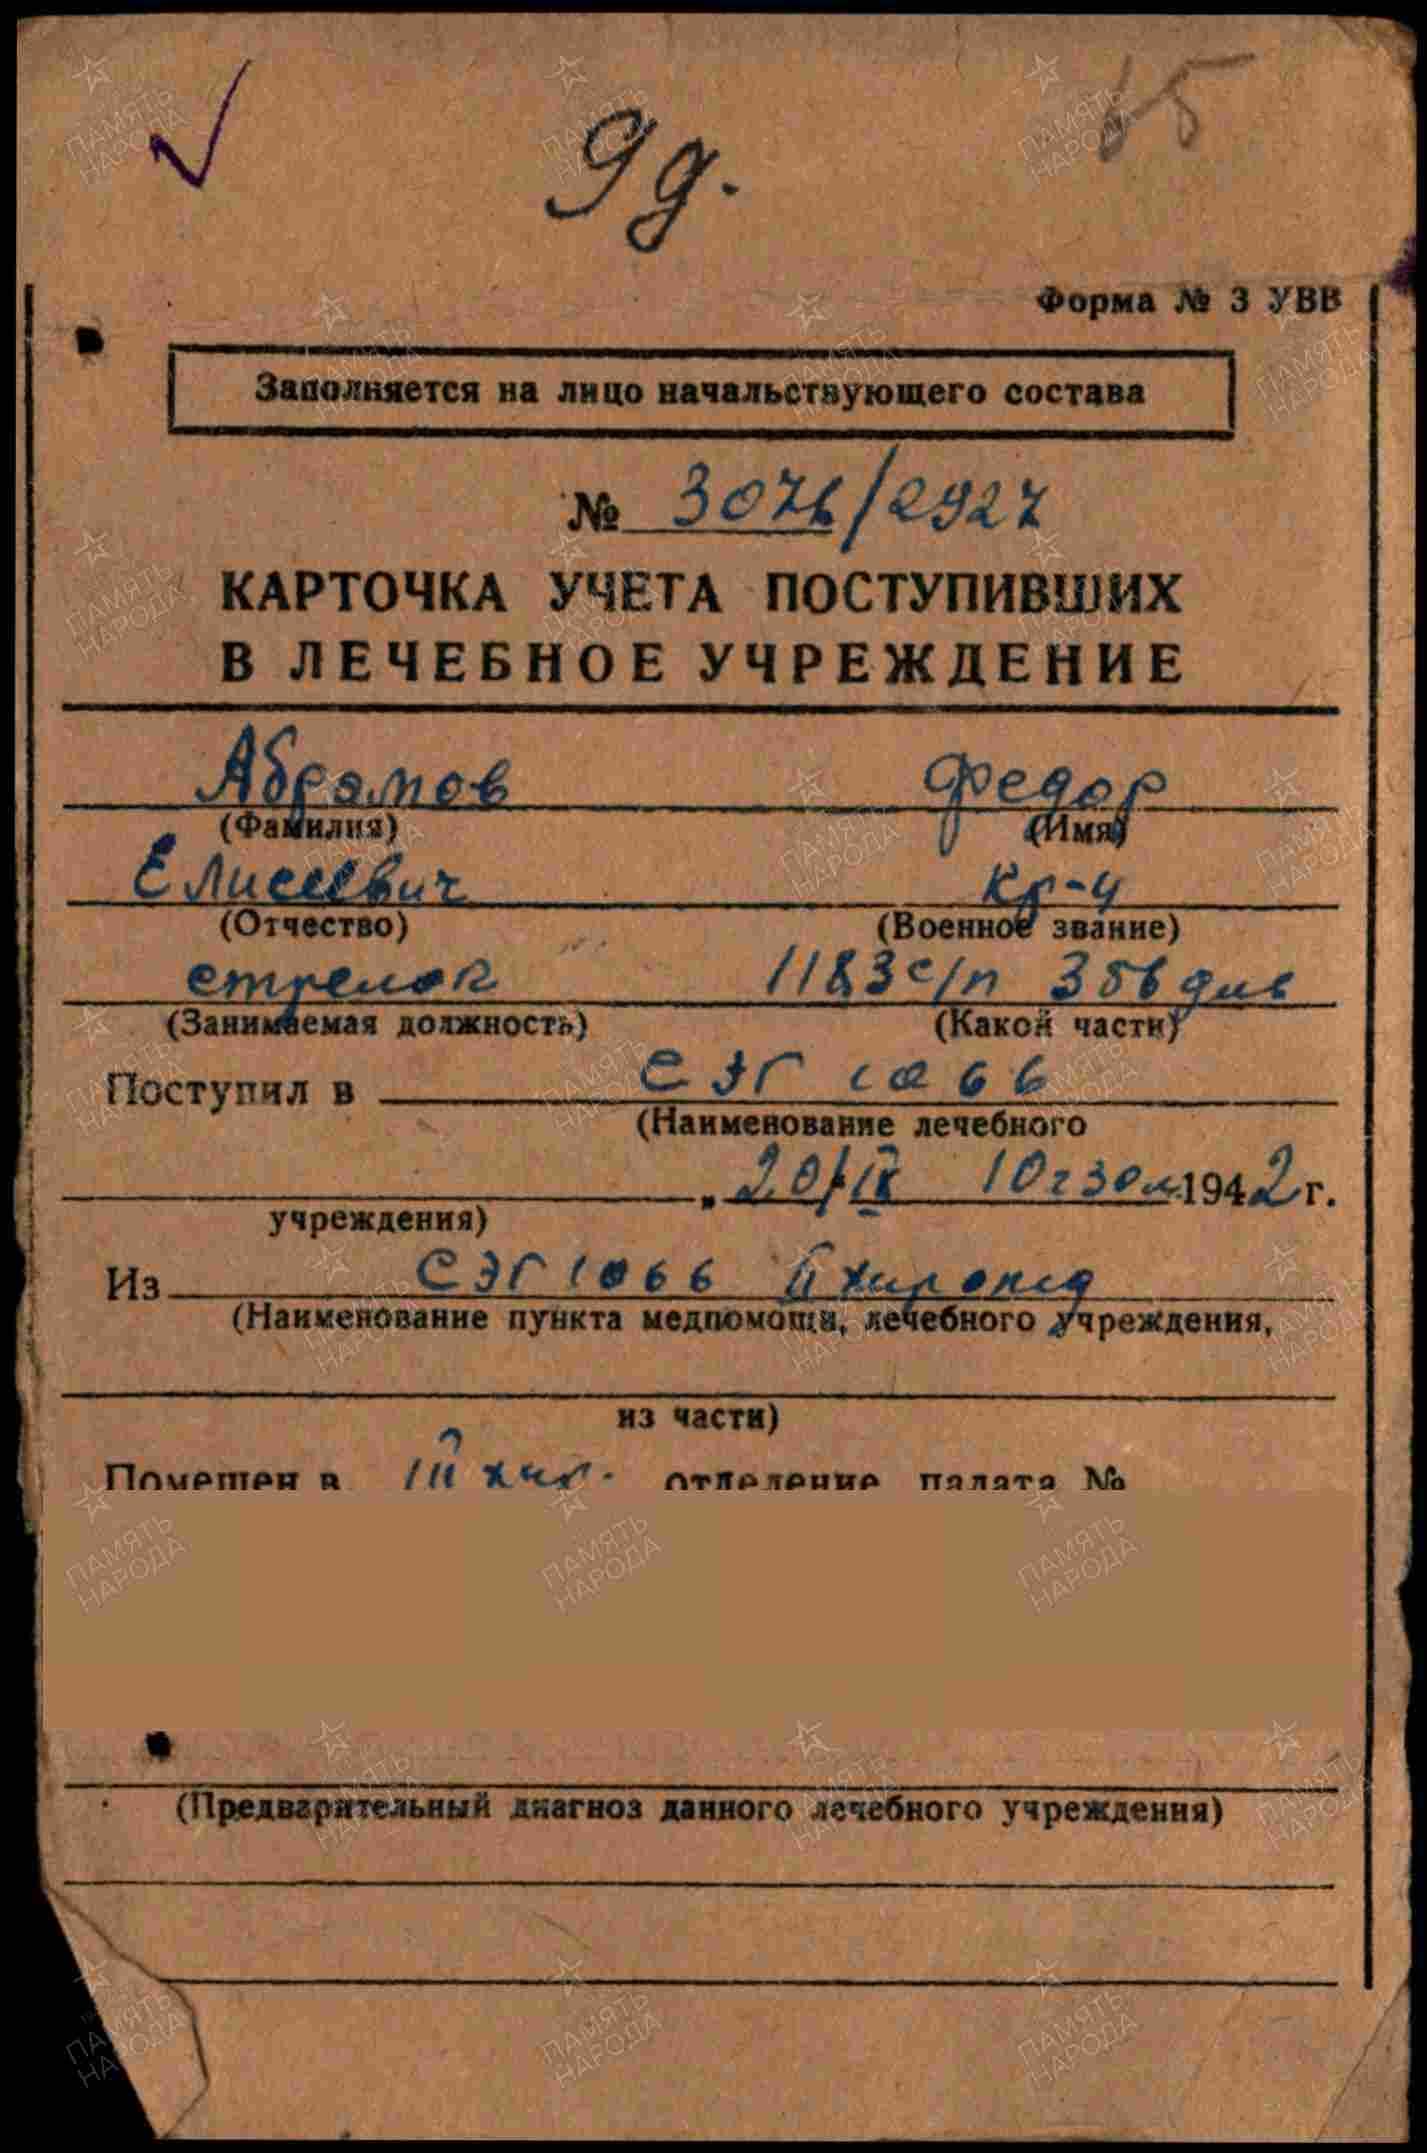 9 д.
65
Форма № 3 УВВ
Заполняется на лицо начальствующего состава
№ 3076/2927
КАРТОЧКА УЧЕТА ПОСТУПИВШИХ
В ЛЕЧЕБНОЕ УЧРЕЖДЕНИЕ
Абрамов Федор
(Фамилия) (Имя)
Елисеевич Кр-ц
(Отчество) (Военное звание)
стрелок 1183 с/п 356 див
(Занимаемая должность) (Какой части)
Поступил в СЭГ 1066
(Наименование лечебного
„ 20/IX 10 ч 30 м 1942 г.
учреждения)
Из СЭГ 1066 II хир
(Наименование пункта медпомощи, лечебного учреждения,
из части)
Помещен в III хир. отделение палата №
(Предварительный диагноз данного лечебного учреждения)
ПАМЯТЬ НАРОДА